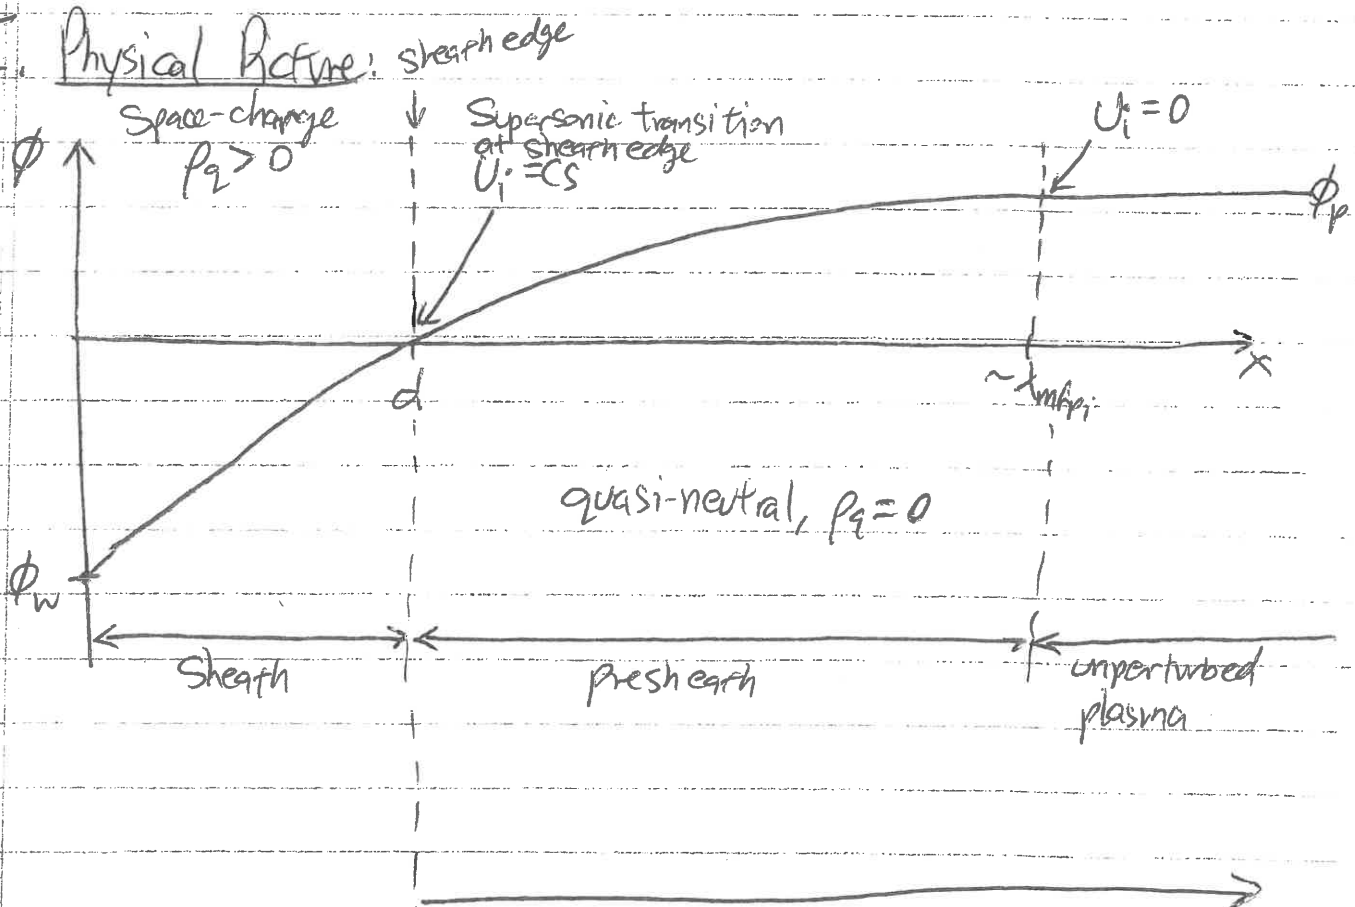 Physical Picture:
sheath edge
Space-charge
ρq > 0
Supersonic transition
at sheath edge
Ui = CS
Ui = 0
ϕ
ϕp
x
d
~ λmfpi
quasi-neutral, ρq = 0
ϕw
Sheath
Presheath
unperturbed
plasma